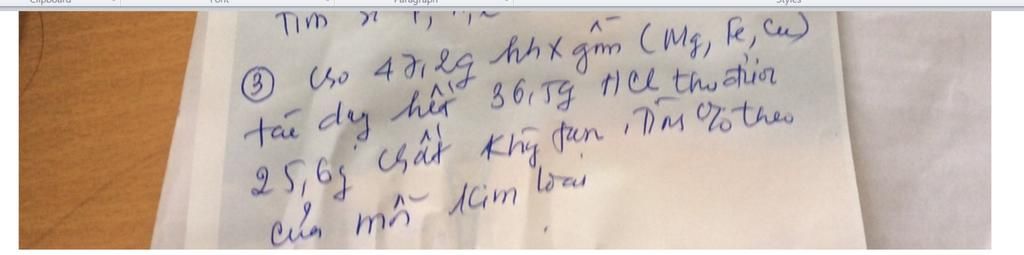 Clipboard Font Paragraph Styles
Tìm
③ Cho 47,2g hhX gồm (Mg, Fe, Cu)
tác dụg hết 36,5g HCl thu được
25,6g chất khg tan. Tìm % theo
của mỗi kim loại